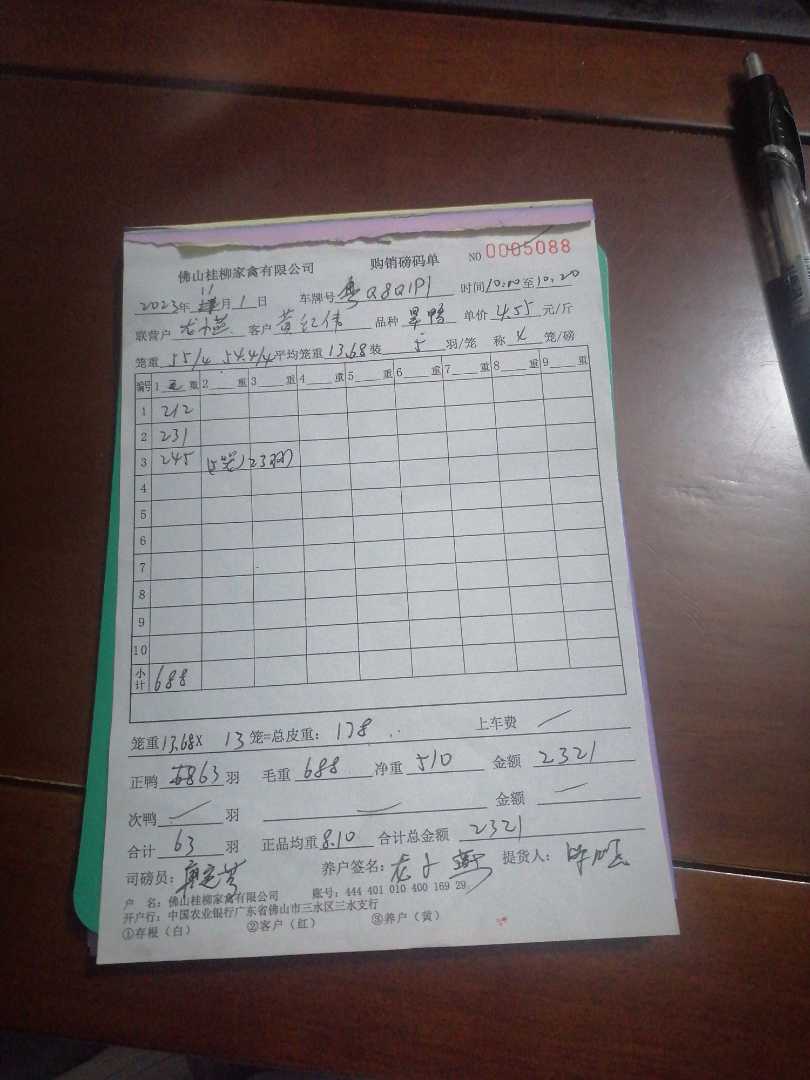 佛山桂柳家禽有限公司 购销磅码单 NO 0005088
2023年 11月 1日 车牌号 粤Q8Q1P1 时间10.10至10.20
联营户 客户 黄红伟 品种 单价 4.55 元/斤
笼重 55/4 54.4/4 平均笼重 13.68 装 5 羽/笼 称 4 笼/磅
编号 1 重 2 重 3 重 4 重 5 重 6 重 7 重 8 重 9 重
1 212
2 231
3 245 (5笼) 23羽)
4
5
6
7
8
9
10
小计 688
笼重 13.68 X 13 笼=总皮重: 178 上车费
正鸭 63 羽 毛重 688 净重 510 金额 2321
次鸭 羽 金额
合计 63 羽 正品均重 8.10 合计总金额 2321
司磅员: 养户签名: 提货人:
户 名: 佛山桂柳家禽有限公司 账号: 444 401 010 400 169 29
开户行: 中国农业银行广东省佛山市三水区三水支行
①存根(白) ②客户(红) ③养户(黄)